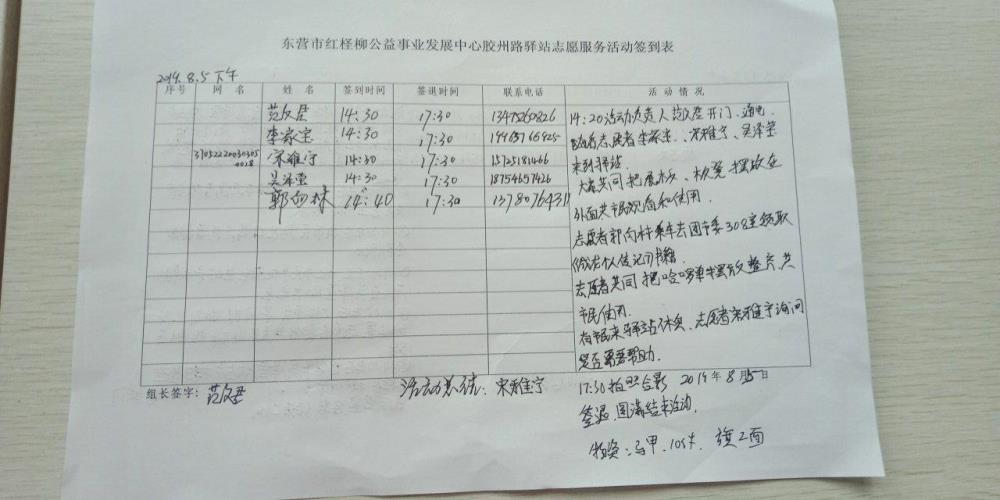 东营市红柽柳公益事业发展中心胶州路驿站志愿服务活动签到表
2019.8.5下午
序号 网 名 姓 名 签到时间 签退时间 联系电话 活 动 情 况
范文君 14:30 17:30 13475260826
李家宝 14:30 17:30
宋雅宁 14:30 17:30
14:30 17:30 18754657426
郭向林 14:40 17:30
14:20活动负责人范文君开门、通电
志愿者李家宝、宋雅宁、吴泽莹
来到驿站
大家共同把展板、板凳摆放在
外面共市民观看和使用.
志愿者郭向林乘车去团市委308室领取
个人传记书籍.
志愿者共同把哈啰单车摆放整齐共
市民使用.
有市民来驿站休息、志愿者宋雅宁询问
是否需要帮助.
17:30拍照合影 2019年8月5日
签退,圆满结束活动.
组长签字: 范文君
活动总结: 宋雅宁
物资:马甲、10件 旗2面